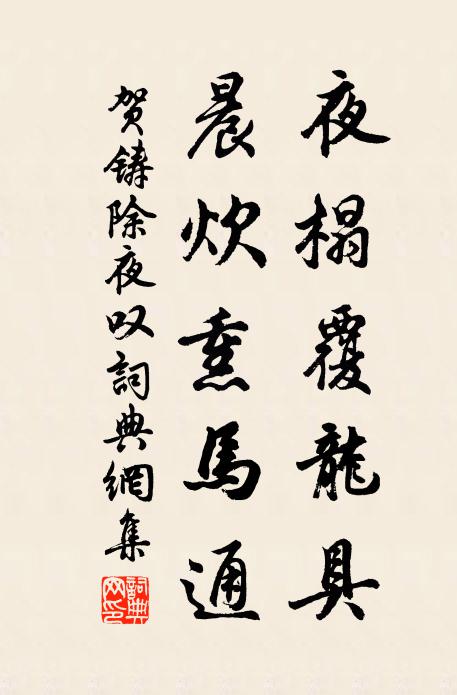 夜榻覆龍具
晨炊熏馬通
贺鋳除夜叹詞典網集
詞典網印